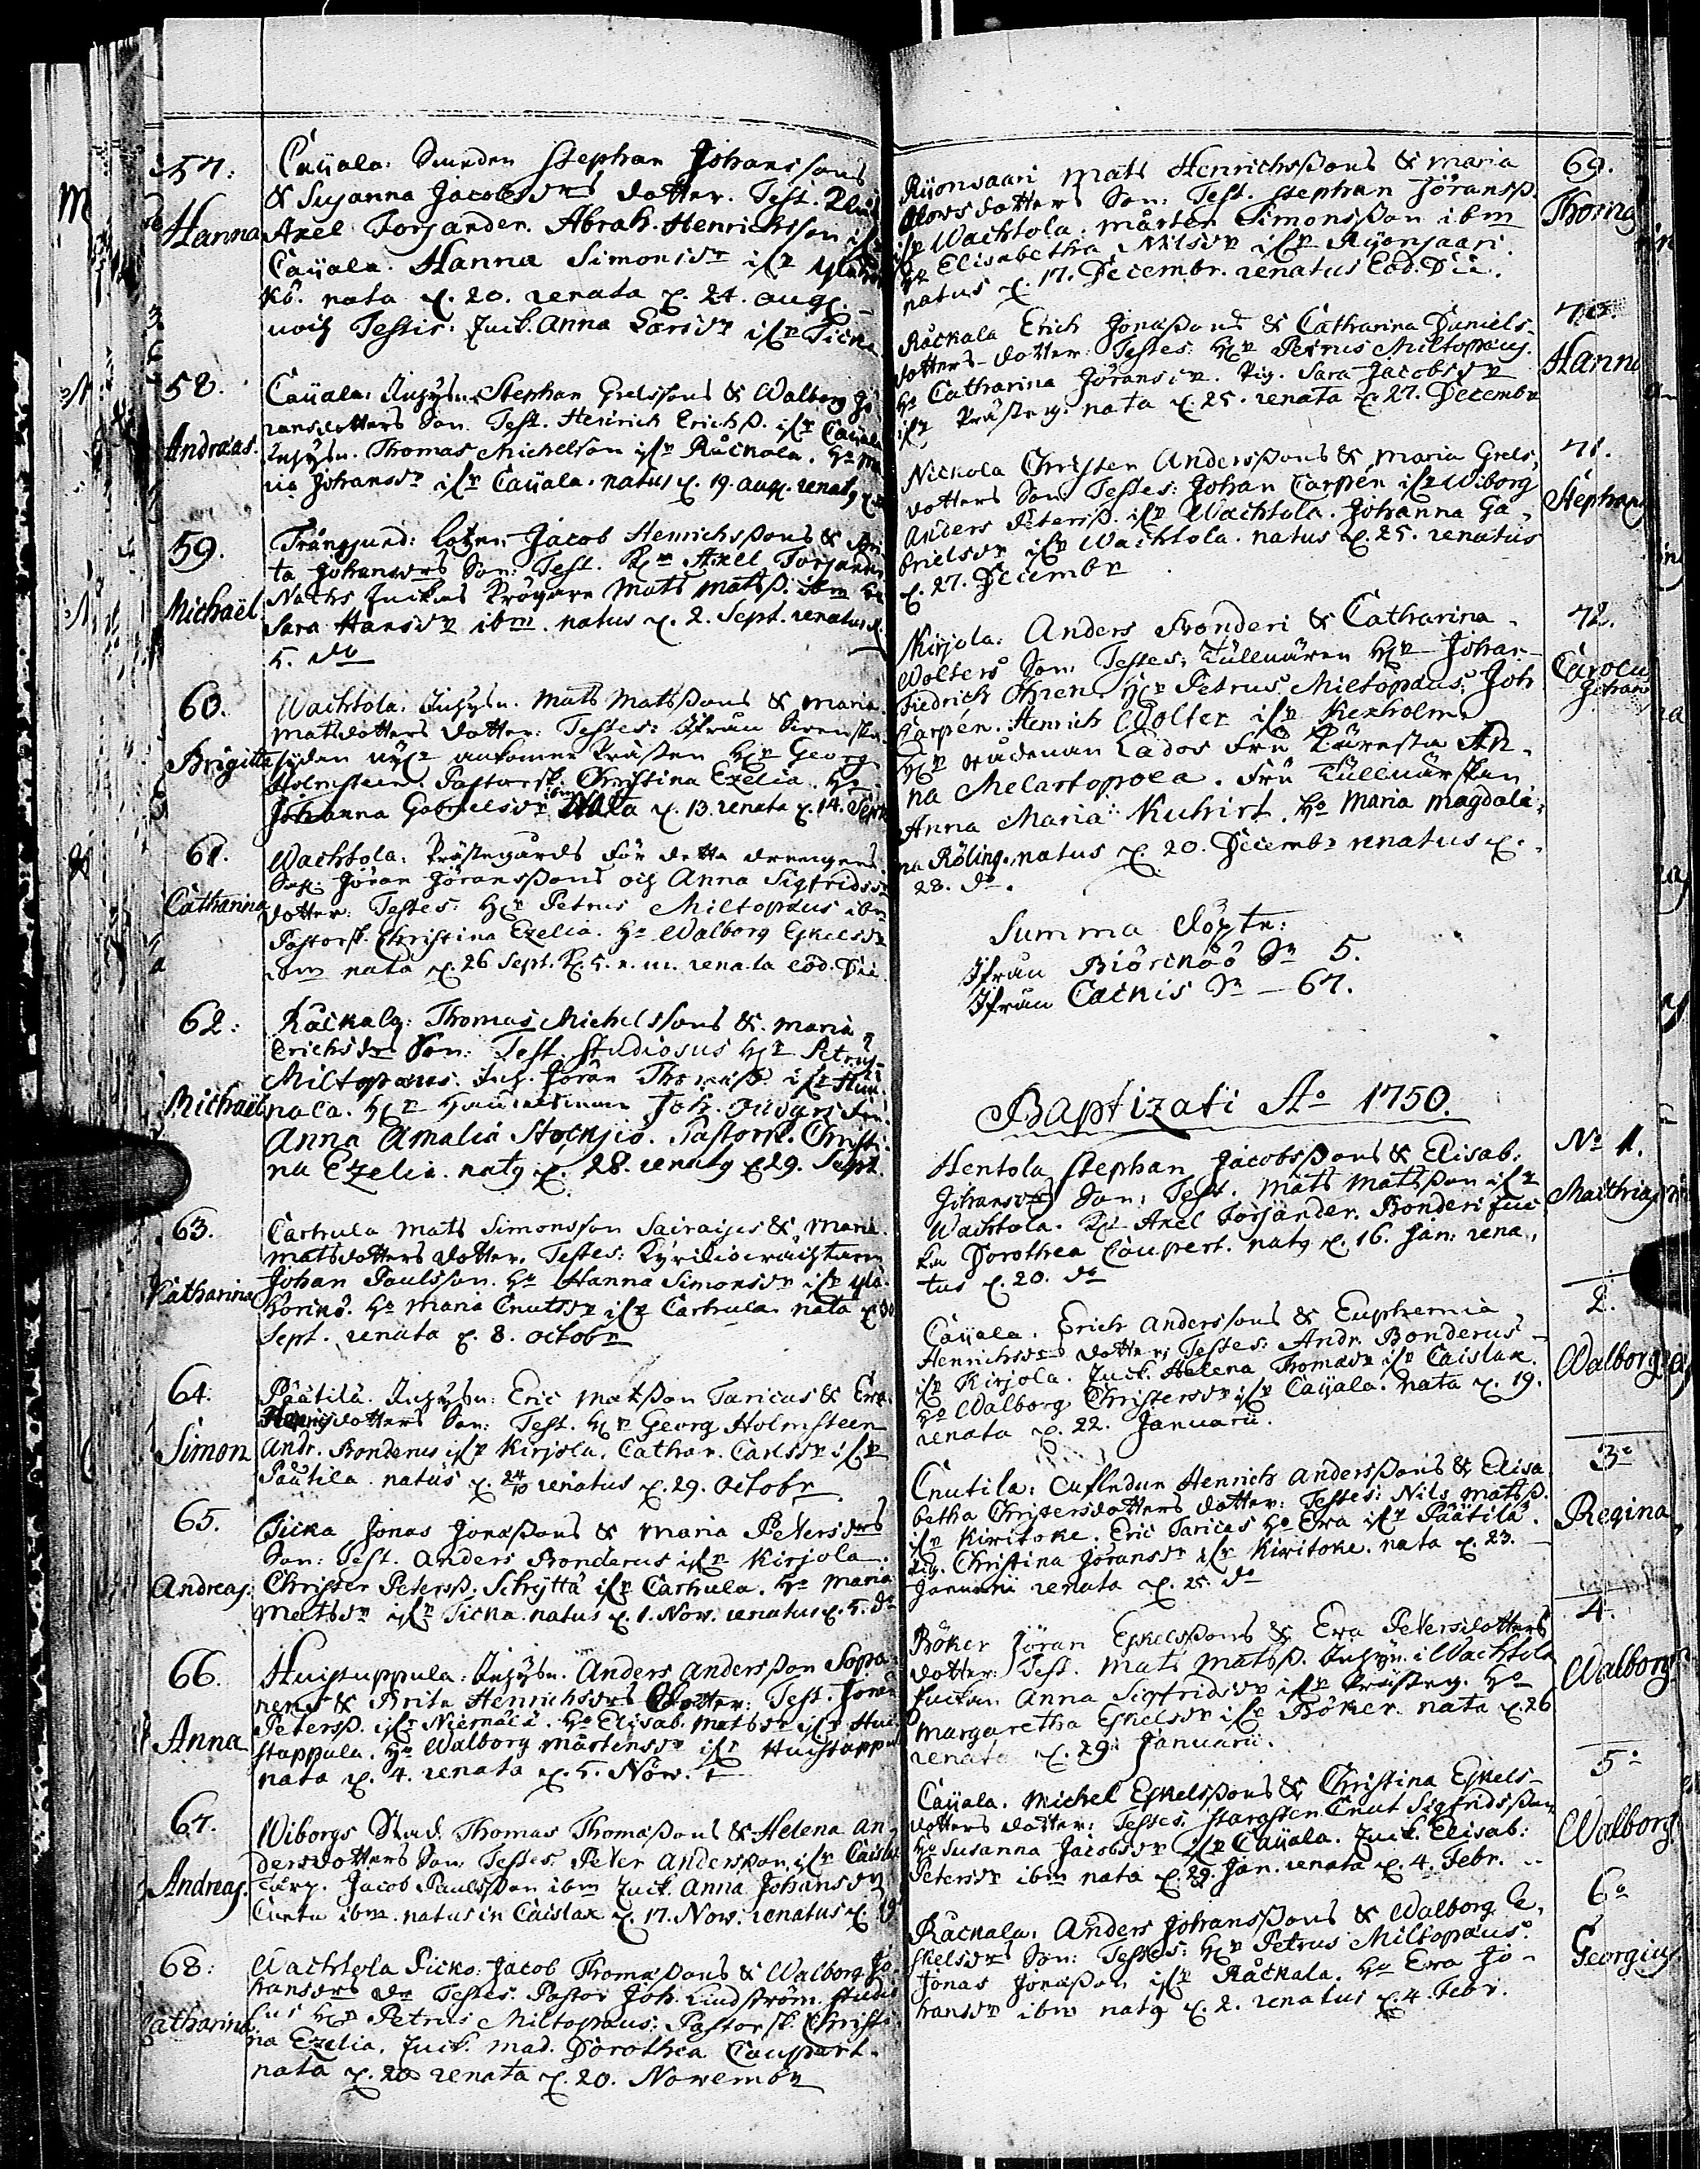 57.
Hanna
Cayala: Stephan Johanssons
& Susanna Jacobsdrs dotter. Test.
Axel Forsander. Abrah. Henrichsson
Cayala. Hanna Simonsdr ifr
kö. nata d. 20. renata d. 24. aug.
Testis: Anna Larsdr ifr Ticka
58.
Andreas.
Cayala: Inhysn. Stephan Grelssons & Walborg Jö
ransdotters Son. Test. Henrich Erichss. ifr Cayala
Inhysn. Thomas Michelson ifr Råckala. Ha Ma
ria Johansdr ifr Cayala. natus d. 19. aug. renatg d.
59.
Michaël
Trångsund: Jacob Henrichssons &
ta Johansdrs Son: Test. Axel Forsander
Mats Matss. ibm
Sara Hansdr ibm. natus d. 2. Sept. renatus d.
5. do
60.
Brigitta
Wachtola: Inhysn. Mats Matssons & Maria
Matsdotters dotter: Testes: Ifrån Svenska
sidan Prästen Hr Georg
Holmsteen. Pastorsk. Christina Ezelia. Ha
Johanna Gabrielsdr ibm Nata d. 13. renata d. 14. Sept
61.
Catharina
Wachtola: Prästegårds för detta drengens
Jöran Jöranssons och Anna Sigfridsdr
dotter: Testes: Hr Petrus Miltopæus ibm
Pastorsk. Christina Ezelia. Ha Walborg Eskelsdr
ibm nata d. 26 Sept. renata eod. Die
62:
Michaël
Råckala: Thomas Michelssons & Maria
Erichsdrs Son: Test. Studiosus Hr Petrus
Miltopæus. Inh. Jöran Thomass. ifr
nala. Hr Joh.
Anna Amalia Pastorsk. Christi
na Ezelia. natg d. 28. renatg d. 29. Sept.
63.
Catharina
Carhula Mats Simonsson Sairaises & Maria
Matsdotters dotter. Testes:
Johan Paulsson. Ha Hanna Simonsdr ifr Yla
Ha Maria Cnutsdr ifr Carhula. nata d. 30
Sept. renata d. 8. octobr
64.
Simon
Päätilä. Inhysn: Eric Matsson Taricas & Eva
Henrichsdotters Son: Test. Hr Georg Holmsteen
Andr. Ronderus ifr Kirjola. Cathar. Carlsdr ifr
Päätilä. natus d. 24/10 renatus d. 29. Octobr
65.
Andreas.
Ticka Jonas Jonassons & Maria Petersdrs
Son: Test. Anders Ronderus ifr Kirjola.
Christer Peterss. Schyttä ifr Carhula. Ha Maria
Matsdr ifr Ticka. natus d. 1. Nov. renatus d. 5. do
66.
Anna
Huistuppula: Inhysn. Anders Andersson Sopa
nens & Brita Henrichsdrs Dotter: Test. Jöran
Peterss. ifr Niemälä. Ha Elisab. Matsdr ifr Hui
stuppula. Ha Walborg Mårtensdr ifr Huistuppul
nata d. 4. renata d. 5. Nov.
67.
Andreas.
Wiborgs Stad. Thomas Thomassons & Helena An
dersdotters Son. Testes: Peter Andersson ifr Caislax
Jacob Paulsson ibm Anna Johansdr
ibm. natus in Caislax d. 17. Nov. renatus d. 19
68:
Catharina
Wachtola Jacob Thomassons & Walborg Jo
hansdrs dr Testes. Pastor Joh. Lindström. Studio
sus Hr Petrus Miltopæus: Pastorsk. Christi
na Ezelia. Mad. Dorothea Caupert
nata d. 20 renata d. 20. Novembr
69.
Thomas
Ryönsaari Mats Henrichssons & Maria
Olovsdotters Son: Test. Stephan Jöranss.
ifr Wachtola. Mårten Simonsson ibm
Ha Elisabetha Nilsdr ifr Ryönsaari.
natus d. 17. Decembr. renatus Eod. Die.
70.
Hanna
Råckala Erich Jonassons & Catharina Daniels-
dotters dotter: Testes: Hr Petrus Miltopæus.
Ha Catharina Jöransdr. Pig. Sara Jacobsdr
ifr Prästeg. nata d. 25. renata d. 27. Decembr
71.
Stephang
Nickola Christer Anderssons & Maria Grels-
dotters Son: Testes: Johan Carpén ifr Wiborg
Anders Peterss. ifr Wachtola. Johanna Ga-
brielsdr ifr Wachtola. natus d. 25. renatus
d. 27. Decembr
72.
Carolus
Johan
Kirjola: Anders Ronderi & Catharina
Wolters Son: Testes: Tullnären Hr Johan
Fiedrich Öhren. Hr Petrus Miltopæus. Joh
Carpén. Henrich Wolter ifr Kexholm.
Hr Lados Fru An-
na Melartopoea. Fru Tullnärskan
Anna Maria Kuhirt. Ha Maria Magdale-
na Röling. natus d. 20. Decembr renatus d.
28. do.
Summa döpte:
Ifrån Biörcköö Sn 5.
Ifrån Cackis Sn — 67.
Baptizati Ao 1750.
No 1.
Matthias
Hentola Stephan Jacobssons & Elisab.
Johansdrs Son: Test. Mats Matsson ifr
Wachtola. Axel Forsander. Ronderi
Dorothea Caupert. natg d. 16. Jan: rena-
tus d. 20. do
2.
Walborg
Cayala. Erich Anderssons & Euphemia
Henrichsdrs dotter, Testes: Andr. Ronderus
ifr Kirjola. Helena Thomasdr ifr Caislax.
Ha Walborg Christersdr ifr Cayala. nata d. 19.
renata d. 22. Januarii.
3.
Regina
Cnutila: Henrich Anderssons & Elisa
betha Christersdotters dotter: Testes: Nils Matss.
ifr Kiritoke. Eric Taricas Ha Eva ifr Päätilä.
Pig. Christina Jöransdr ifr Kiritoke. nata d. 23.
Januarii renata d. 25. do
4.
Walborg
Böker Jöran Eskelssons & Eva Petersdotters
dotter: Test. Mats Matss. Inhysn. i Wachtola
Anna Sigfridsdr ifr Prästeg. Ha
Margaretha Eskelsdr ifr Böker. nata d. 26
renata d. 29. Januarii.
5.
Walborg.
Cayala. Michel Eskelssons & Christina Eskels-
dotters dotter: Testes. Starosten Cnut Sigfridsson
Ha Susanna Jacobsdr ifr Cayala. Elisab:
Petersdr ibm nata d. 29. Jan. renata d. 4. Febr.
6.
Georgius
Råckala: Anders Johanssons & Walborg E-
skelsdrs Son: Testes: Hr Petrus Miltopæus.
Jonas Jonasson ifr Råckala. Ha Eva Jo-
hansdr ibm natg d. 2. renatus d. 4. Febr.